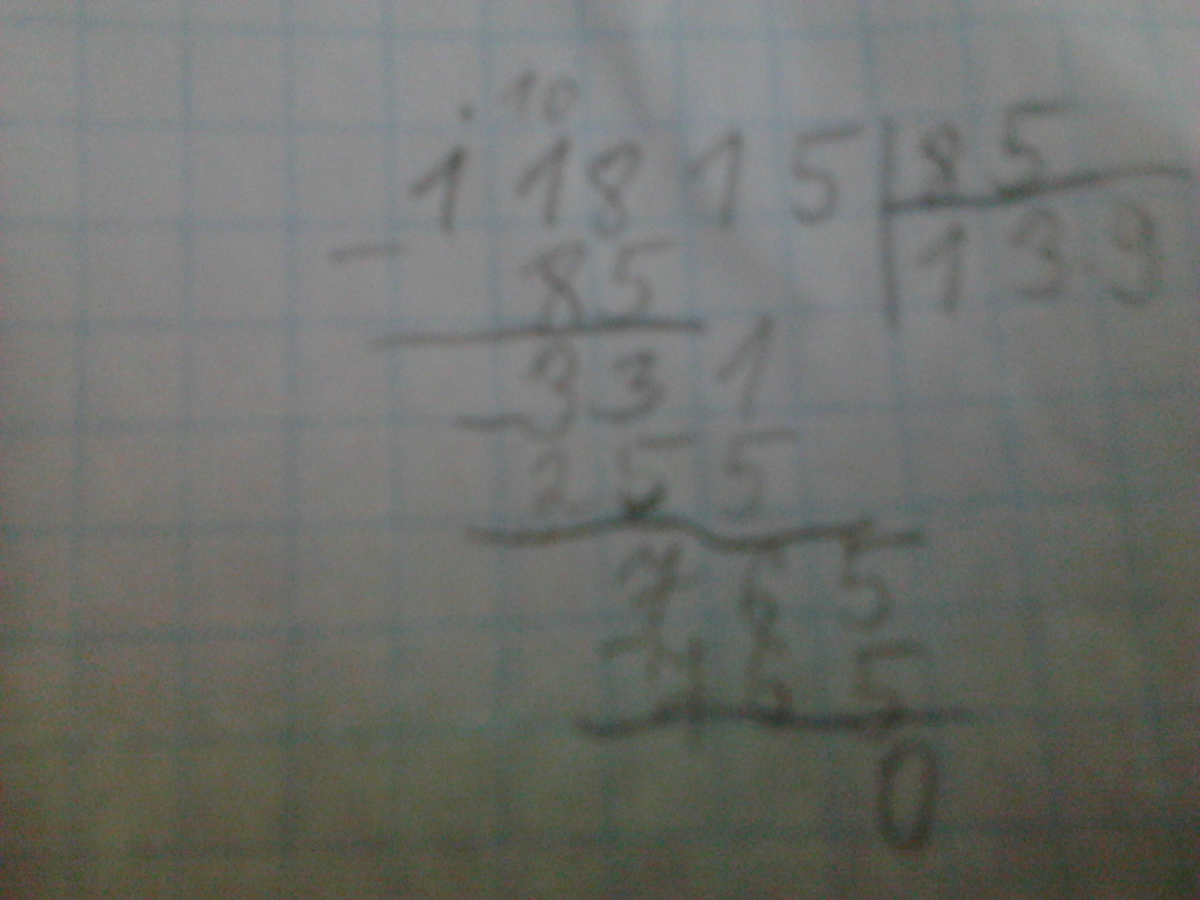 10
11815 85
- 85 139
331
- 255
765
- 765
0